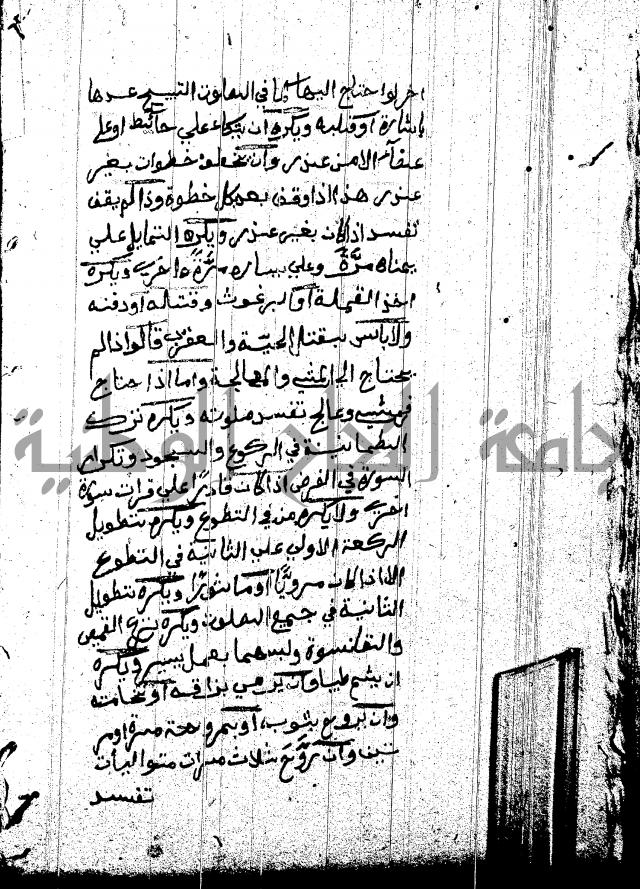 اخر لو احتاج اليها كما في الصلوت التسبيح عدها
باشارة او قلبه ويكره ان يتكاء علي حائط او علي
عصآء الا من عذر وان يخطو خطوات بغير
عذر هذا اذا وقف بعد كل خطوة وذا لم يقف
تفسد اذا كان بغير عذر ويكره التمايل علي
يمناه مرَّةً وعلي يساره مرَّةً اخري ويكره
اخذ القملة او البرغوث وقتاله او دفنه
ولا باس بقتل الحيّة والعقرب قالوا اذا لم
يحتاج الي المشي والمعالجة واما اذا احتاج
فمشي وعالج تفسد صلوته ويكره ترك
الطمانينة في الركوع والسجود وتكرار
السورة في الفرض اذا كان قادرًا علي قرات سورة
اخرَي ولا يكره من في التطوع ويكره تطويل
الركعة الاولي علي الثانية في التطوع
الا اذا كان مرويًّا او ماثورًا ويكره تطويل
الثانية في جميع الصلوت ويكره نزع القميص
والقلنسوة ولبسهما بعمل يسير ويكره
ان يشم طيبا وان يرمي بزاقه او نخامته
وان يروح بثوبه او بمروحة مرة او مر
تين وان روَّحَ ثلاث مرات متواليات
تفسد
جامعة النجاح الوطنية